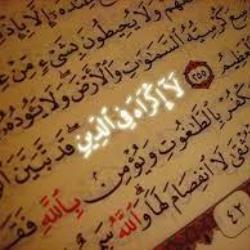 وَلَا يُحِيطُونَ بِشَيْءٍ مِّنْ
كُرْسِيُّهُ السَّمَاوَاتِ وَالْأَرْضَ وَلَا يَئُودُهُ
٢٥٥ لَا إِكْرَاهَ فِي الدِّينِ قَد تَّبَيَّنَ
بِالطَّاغُوتِ وَيُؤْمِن بِاللَّهِ فَقَدِ
لَا انفِصَامَ لَهَا وَاللَّهُ
٤٢